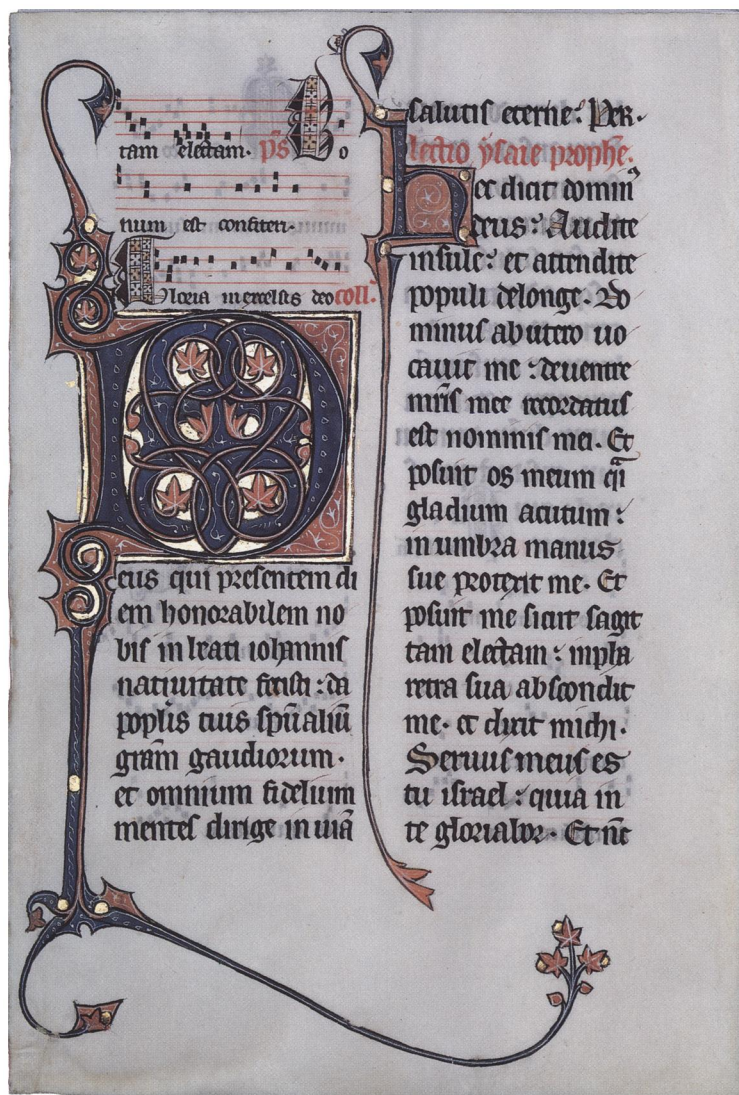 tam electam. p̄s Bo
num est confiteri.
Gloria in excelsis deo coll.
Deus qui presentem di
em honorabilem no
bis in beati iohannis
natiuitate fecisti: da
poplis tuis sp̄ualiū
gram̄ gaudiorum.
et omnium fidelium
mentes dirige in uiā
salutis eterne: Per.
lectio ysaie prophe.
Hec dicit domin᾽
deus: Audite
insule: et attendite
populi delonge. Do
minus ab utero uo
cauit me: de uentre
mr̄is mee recordatus
est nominis mei. Et
posuit os meum q̄i
gladium acutum:
in umbra manus
sue protexit me. Et
posuit me sicut sagit
tam electam: inpha
retra sua abscondit
me. et dixit michi.
Seruus meus es
tu israel: quia in
te gloriabor. Et nūc